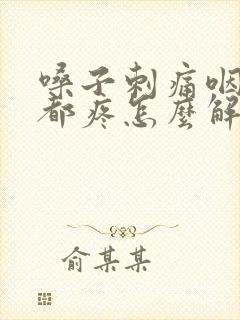 嗓子刺痛咽
都疼怎麼解
俞某某